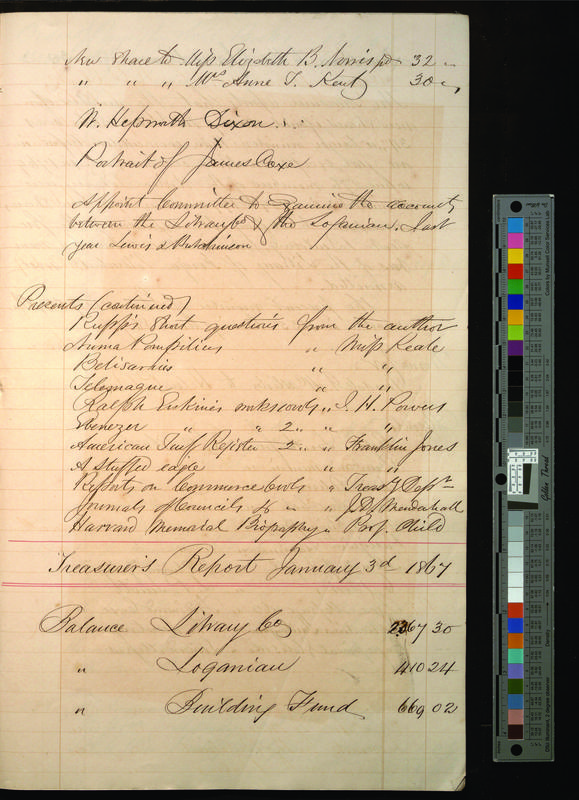 New Share to Miss Elizabeth B. Norris pd 32 "
" " " Mrs Anne T. Kent 30 "
W. Hepworth Dixon
Portrait of James Coxe
Appoint Committee to Examine the accounts
between the Library Co & the Loganian. Last
year Lewis & Hutchinson
Presents (continued)
Rupp's Short questions from the author
Numa Pompilius " Miss Keale
Belisarius " "
Telemaque " "
Ralph Erskine's works " J. H. Powers
Ebenezer " " 2 " " "
American Turf Register 2 " " Franklin Jones
A Stuffed eagle " "
Reports on Commerce 6 vols " Treasy Dept
Journals of Councils &c " " J. D. Mendenhall
Harvard Memorial Biography " Prof. Child
Treasurer's Report January 3d 1867
Balance Library Co 2367 30
" Loganian 410 24
" Building Fund 669 02